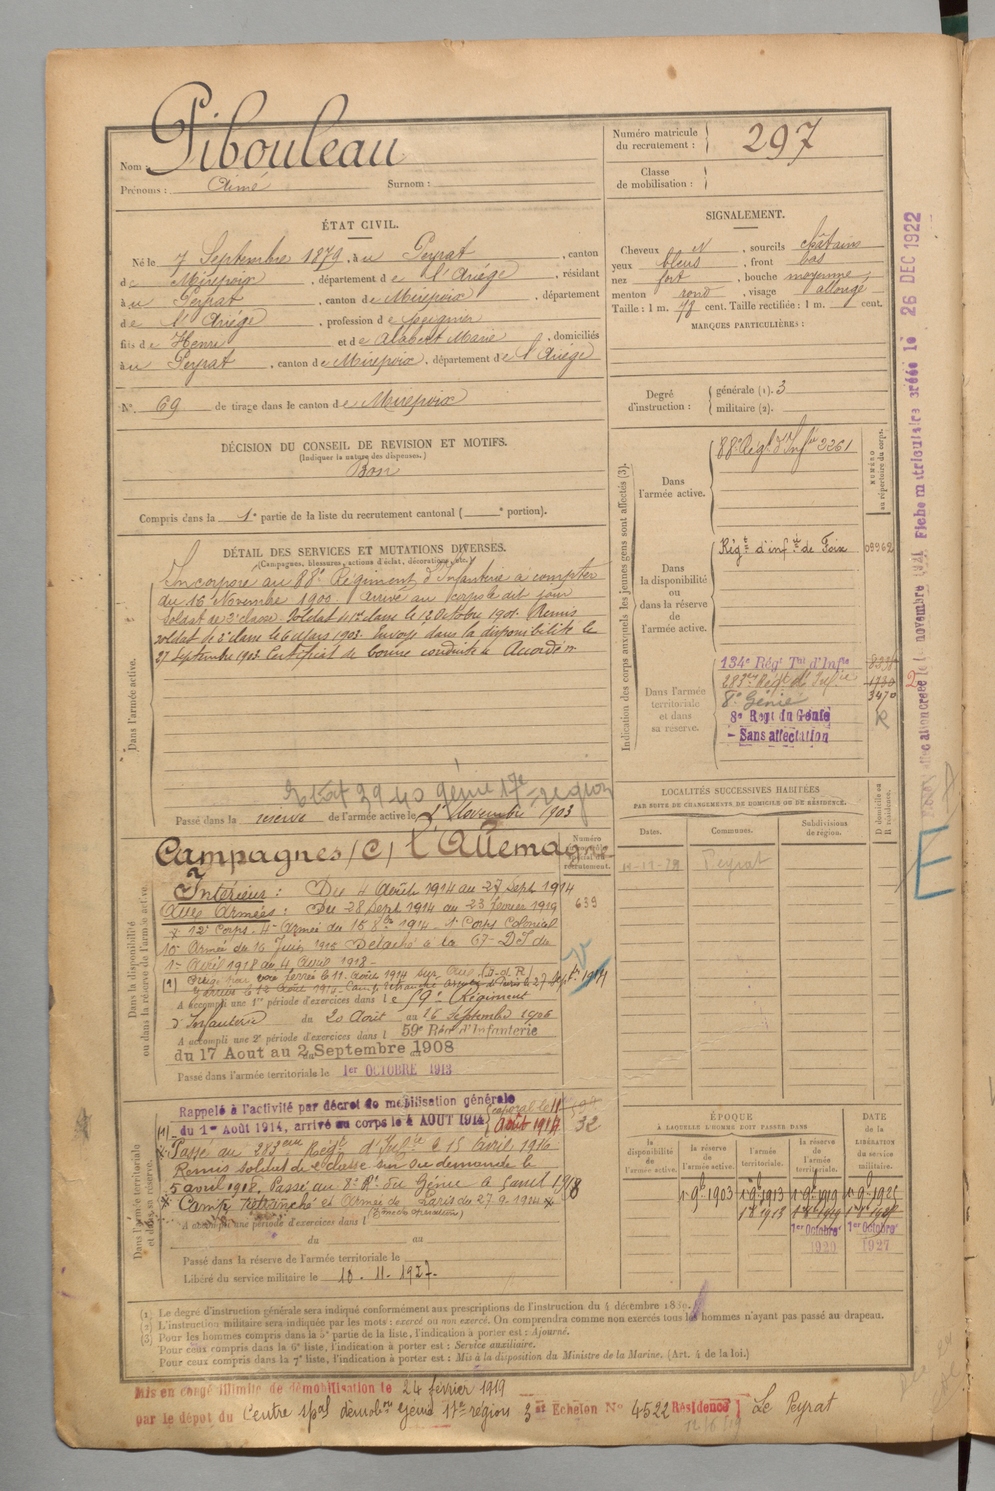 Nom : Pibouleau
Prénoms : Aimé Surnom :
Numéro matricule du recrutement : 297
Classe de mobilisation :
ÉTAT CIVIL.
Né le 7 Septembre 1879, à u Peyrat, canton
de Mirepoix, département de l'Ariège, résidant
à u Peyrat, canton de Mirepoix, département
de l'Ariège, profession de peigneur
fils de Henri et de Alabert Marie, domiciliés
à u Peyrat, canton de Mirepoix, département de l'Ariège
N° 69 de tirage dans le canton de Mirepoix
SIGNALEMENT.
Cheveux N, sourcils châtains
yeux bleus, front bas
nez fort, bouche moyenne
menton rond, visage allongé
Taille : 1 m. 78 cent. Taille rectifiée : 1 m. cent.
MARQUES PARTICULIÈRES :
Degré d'instruction : générale (1). 3
militaire (2).
DÉCISION DU CONSEIL DE REVISION ET MOTIFS.
(Indiquer la nature des dispenses.)
Bon
Compris dans la 1e partie de la liste du recrutement cantonal ( e portion).
DÉTAIL DES SERVICES ET MUTATIONS DIVERSES.
(Campagnes, blessures, actions d'éclat, décorations, etc.)
Dans l'armée active.
Incorporé au 88e Régiment d'Infanterie à compter
du 16 Novembre 1900. Arrivé au corps le dit jour
Soldat de 2e classe. Soldat de 1re classe le 12 Octobre 1901. Remis
soldat de 2e classe le 6 Mars 1903. Envoyé dans la disponibilité le
27 Septembre 1903. Certificat de bonne conduite Accordé
génie 17e région
Passé dans la réserve de l'armée active le 1er Novembre 1903
Indication des corps auxquels les jeunes gens sont affectés (3).
NUMÉRO au répertoire du corps.
Dans l'armée active.
88e Régt d'Infie 2261
Dans la disponibilité ou dans la réserve de l'armée active.
Régt d'infie de Foix 09962
Dans l'armée territoriale et dans sa réserve.
134e Régt Tal d'Infie
283me Régt d'Infie 1730
8e Génie 3470
8e Regt du Génie R
- Sans affectation
Dans la disponibilité ou dans la réserve de l'armée active
Campagnes (C) l'Allemagne
Numéro
recrutement.
Intérieur : Du 4 Août 1914 au 27 Sept 1914
Aux Armées : Du 28 Sept 1914 au 23 février 1919 639
12e Corps. 4e Armée du 15 8bre 1914. 1er Corps Colonial
10e Armée du 14 Juin 1915 Détaché à la 67e D.I du
1er Avril 1918 au 4 Avril 1918 -
A accompli une 1re période d'exercices dans le 59e Régiment
d'Infanterie du 20 Août au 16 Septembre 1906
A accompli une 2e période d'exercices dans l 59e Régt d'Infanterie
du 17 Aout au 2 Septembre 1908
Passé dans l'armée territoriale le 1er OCTOBRE 1913
LOCALITÉS SUCCESSIVES HABITÉES
PAR SUITE DE CHANGEMENTS DE DOMICILE OU DE RÉSIDENCE.
Dates. Communes. Subdivisions de région. D domicile ou R résidence.
Peyrat
Dans l'armée territoriale et dans sa réserve.
Rappelé à l'activité par décret de mobilisation générale
du 1er Août 1914, arrivé au corps le 4 AOUT 1914 caporal le 11 Août 1914 32
Passé au 283eme Régt d'Infie le 15 Avril 1916
Remis soldat de 2e classe sur sa demande le
5 avril 1918. Passé au 8e Rt du Génie le
Camp retranché et Armée de Paris du 27-9-1914
A accompli une période d'exercices dans l
du au
Passé dans la réserve de l'armée territoriale le
Libéré du service militaire le 10 . 11 . 1927.
ÉPOQUE
À LAQUELLE L'HOMME DOIT PASSER DANS
DATE de la LIBÉRATION du service militaire.
la disponibilité de l'armée active. la réserve de l'armée active. l'armée territoriale. la réserve de l'armée territoriale.
1er 9b 1903 1er 9b 1913 1er 9b 1919
1er 8b 1913
1er Octobre 1920 1er Octobre 1927
(1) Le degré d'instruction générale sera indiqué conformément aux prescriptions de l'instruction du 4 décembre 1889.
(2) L'instruction militaire sera indiquée par les mots : exercé ou non exercé. On comprendra comme non exercés tous les hommes n'ayant pas passé au drapeau.
(3) Pour les hommes compris dans la 5e partie de la liste, l'indication à porter est : Ajourné.
Pour ceux compris dans la 6e liste, l'indication à porter est : Service auxiliaire.
Pour ceux compris dans la 7e liste, l'indication à porter est : Mis à la disposition du Ministre de la Marine. (Art. 4 de la loi.)
Mis en congé illimité de démobilisation le 24 février 1919
par le dépot du Centre spal démobon génie 17e région 3e Echelon N° 4522 Résidence Le Peyrat
Fiche matriculaire créée le 26 DEC 1922
E